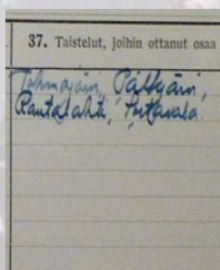 37. Taistelut, joihin ottanut osaa
Tohmajärvi, Pälkjärvi,
Rautalahti, Sortavala.